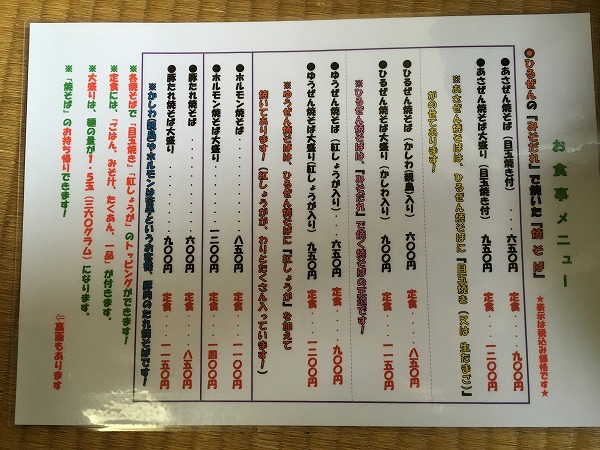 お食事メニュー
●ひるぜんの『みそだれ』で焼いた『焼そば』
★表示は税込み価格です★
●あさぜん焼そば（目玉焼き付）・・・六五〇円 定食・・・九〇〇円
●あさぜん焼そば大盛り（目玉焼き付）九五〇円 定食・・一二〇〇円
※あさぜん焼そばは、ひるぜん焼そばに『目玉焼き（又は 生たまご）』
がのせてあります！
●ひるぜん焼そば（かしわ(親鳥)入り）・・六〇〇円 定食・・・八五〇円
●ひるぜん焼そば大盛り（かしわ入り）・・九〇〇円 定食・・一一五〇円
※ひるぜん焼そばは、『みそだれ』で焼く焼そばの王道です！
●ゆうぜん焼そば（紅しょうが入り）・・・六五〇円 定食・・・九〇〇円
●ゆうぜん焼そば大盛り（紅しょうが入り）九五〇円 定食・・一二〇〇円
※ゆうぜん焼そばは、ひるぜん焼そばに『紅しょうが』を加えて
焼いてあります！（紅しょうがが、わりとたくさん入っています！）
●ホルモン焼そば・・・・・・・・・八五〇円 定食・・一一〇〇円
●ホルモン焼そば大盛り・・・・・一二〇〇円 定食・・一四〇〇円
●豚たれ焼そば・・・・・・・・・・六〇〇円 定食・・・八五〇円
●豚たれ焼そば大盛り・・・・・・・九〇〇円 定食・・一一五〇円
※かしわ(親鳥)やホルモンは苦手というお客様、豚肉のたれ焼そばです！
※各焼そばで「目玉焼き」「紅しょうが」のトッピングができます！
※定食には、「ごはん、みそ汁、たくあん、一品」が付きます！
※大盛りは、麺の量が１．５玉（三六〇グラム）になります。
※「焼そば」のお持ち帰りできます！
⇦裏面もあります